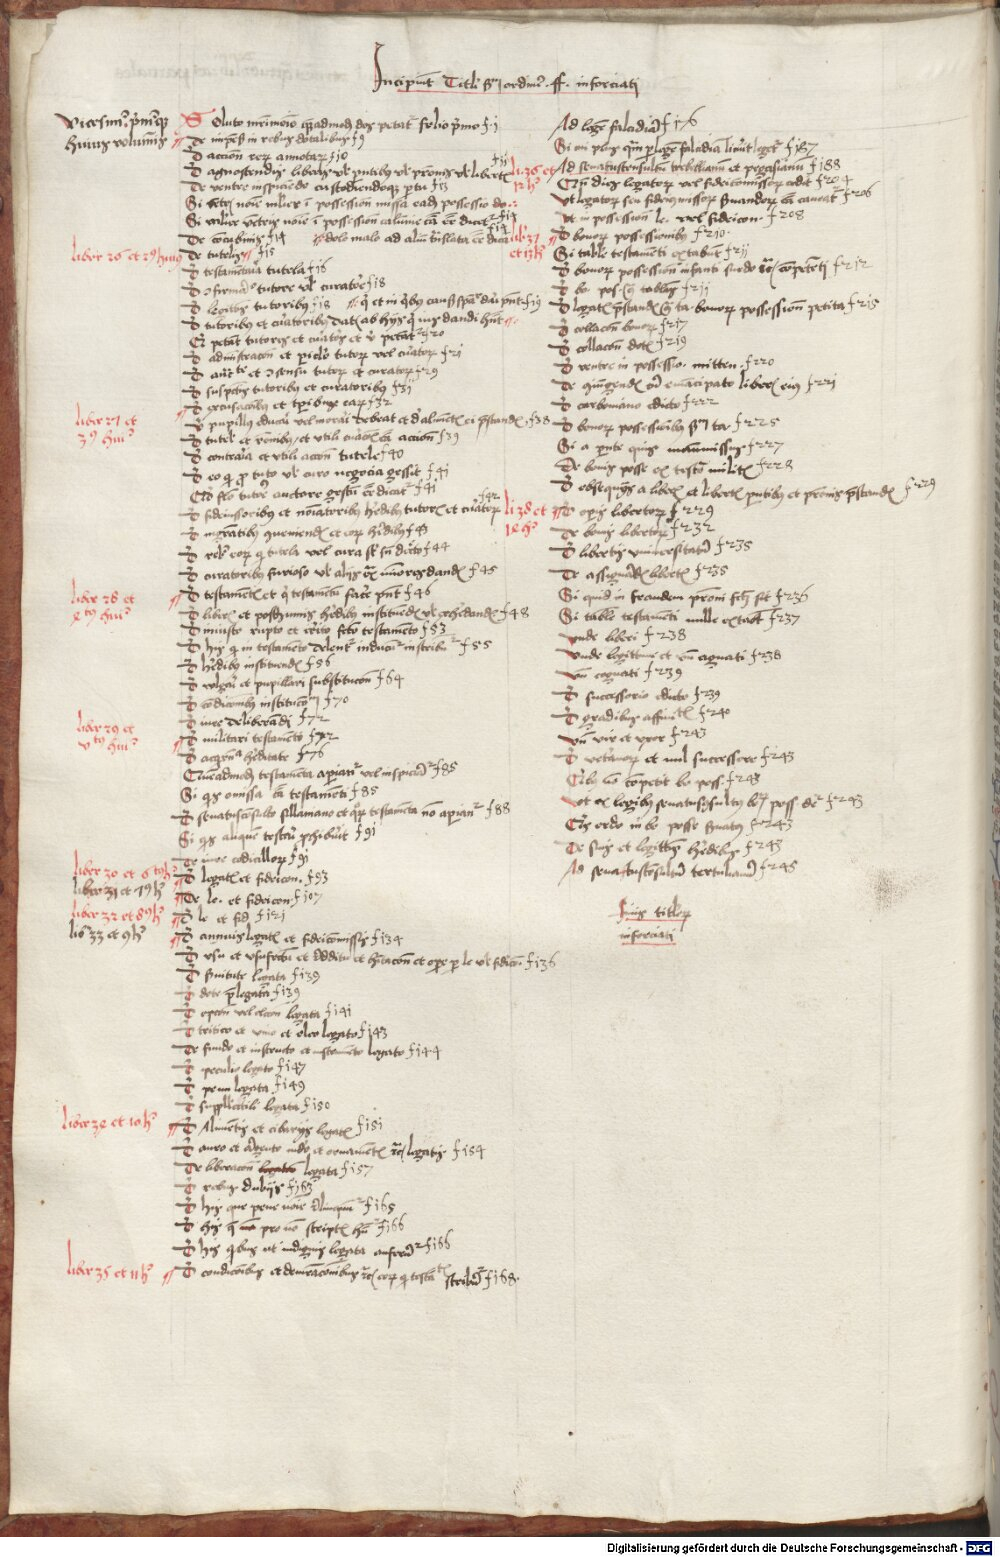 Incipiunt Tituli secundum ordinem ff. inforciati
Vicesimus primusque
huius voluminis
Soluto matrimonio quemadmodum dos petatur folio primo f 1
De impensis in rebus dotalibus f 9
De actione rerum amotarum f 10
De agnoscendis liberis vel
De ventre inspiciendo custodiendoque partu f 13
Si ventris nomine mulier in possessionem missa eadem possessio do
Si mulier ventris nomine in possessione calumnie causa esse dicetur f 14
dolo malo ad alium translata esse dicatur f 14
De concubinis f 14
De tutelis f 15
liber 26 et 2us huius
De testamentaria tutela f 16
De confirmando tutore vel curatore f 18
De legitimis tutoribus f 18
De tutoribus et curatoribus datis ab hijs qui ius dandi habent
f 19
Qui petant tutores et curatores et ubi petantur f 20
De administracione et periculo tutorum vel curatorum f 21
De auctoritate et consensu tutorum et curatorum f 29
De suspectis tutoribus et curatoribus f 31
De excusacionibus et temporibus earum f 32
liber 27 et
3us huius
Ubi pupillus educari vel morari debeat et de alimentis ei prestandis f 38
De tutele et rationibus et utili curationis causa actione f 39
De contraria et utili actione tutele f 40
De eo qui pro tutore vel curatore negocia gessit f 41
Quod falso tutore auctore gestum esse dicatur f 41
De fideiussoribus et nominatoribus et heredibus tutorum et curatorum f 42
De magistratibus conveniendis et eorum heredibus f 43
De rebus eorum qui tutela vel cura sunt sine decreto f 44
De curatoribus furioso vel alijs extra minores dandis f 45
liber 28 et
4tus huius
De testamentis et qui testamentum facere possunt f 46
De liberis et posthumis heredibus instituendis vel exheredandis f 48
De iniusto rupto et irrito facto testamento f 53
De his que in testamento delentur inducuntur inscribuntur f 55
De heredibus instituendis f 56
De vulgari et pupillari substitucione f 64
De condicionibus institucionum f 70
De iure deliberandi f 72
liber 29 et
5tus huius
De militari testamento f 72
De acquirenda hereditate f 76
Quemadmodum testamenta aperiantur vel inspiciantur f 85
Si quis omissa causa testamenti f 85
De senatusconsulto sillaniano et quorum testamenta non aperiantur f 88
Si quis aliquem testari prohibuerit f 91
De iure codicillorum f 91
liber 30 et 6tus h
De legatis et fideicom. f 93
liber 31 et 7us h
De le. et fideicom f 107
liber 32 et 8us h
De le et fid f 121
lib 33 et 9us h
De annuis legatis et fideicommissis f 134
De usu et usufructu et redditu et habitacione et opere per le vel fideicom f 136
De servitute legata f 139
De dote prelegata f 139
De opcione vel eleccione legata f 141
De tritico et vino et oleo legato f 143
De fundo et instructo et instrumento legato f 144
De peculio legato f 147
De penu legata f 149
De supplectili legata f 150
liber 34 et 10us h
De Alimentis et cibarijs legatis f 151
De auro et argento mundo et ornamentis legatis f 154
De liberacione legata f 157
De rebus dubijs f 163
De his que pene nomine relinquuntur f 165
De his que pro non scriptis habentur f 166
De his quibus ut indignis legata auferuntur f 166
liber 35 et 11us h
De condicionibus et demonstracionibus et causis eorum que in testamento scribuntur f 168
Ad legem falcidiam f 176
Si cui plus quam per legem falcidiam licuerit legetur f 187
li 36 et
12 h
Ad senatusconsultum trebellianum et pegasianum f 188
Quando dies legatorum vel fideicommissorum cedit f 204
Ut legatorum seu fideicommissorum servandorum causa caveatur f 206
Ut in possessionem le. vel fideicom. f 208
liber 37
et 13 h
De bonorum possessionibus f 210
Si tabule testamenti extabunt f 211
De bonorum possessione infanti surdo competenti f 212
De bo pos contra tabulas f 211
De legatis prestandis contra ta bonorum possessione petita f 215
De collacione bonorum f 217
De collacione dotis f 219
De ventre in possessionem mitten. f 220
De coniungendis cum emancipato liberis eius f 221
De carboniano edicto f 222
De bonorum possessionibus secundum ta f 225
Si a parente quis manumissus f 227
De bonis posse ex testamento militis f 228
De obsequijs a liberis et libertis parentibus et patronis prestandis f 229
li 38 et
14 h
De operis libertorum f 229
De bonis libertorum f 232
De libertis universitatum f 235
De assignandis libertis f 235
Si quid in fraudem patroni factum sit f 236
Si tabule testamenti nulle extabunt f 237
unde liberi f 238
unde legittimi et unde cognati f 238
unde cognati f 239
De successorio edicto f 239
De gradibus affinitatis f 240
unde vir et uxor f 243
De veteranorum et militum successione f 243
Quibus non competit bo poss. f 243
Ut ex legibus senatusconsultis bonorum poss. detur f 243
Quis ordo in bo posse servatur f 243
De suis et legittimis heredibus f 243
Ad senatusconsultum tertulianum f 245
Finis titulorum
inforciati
Digitalisierung gefördert durch die Deutsche Forschungsgemeinschaft - DFG